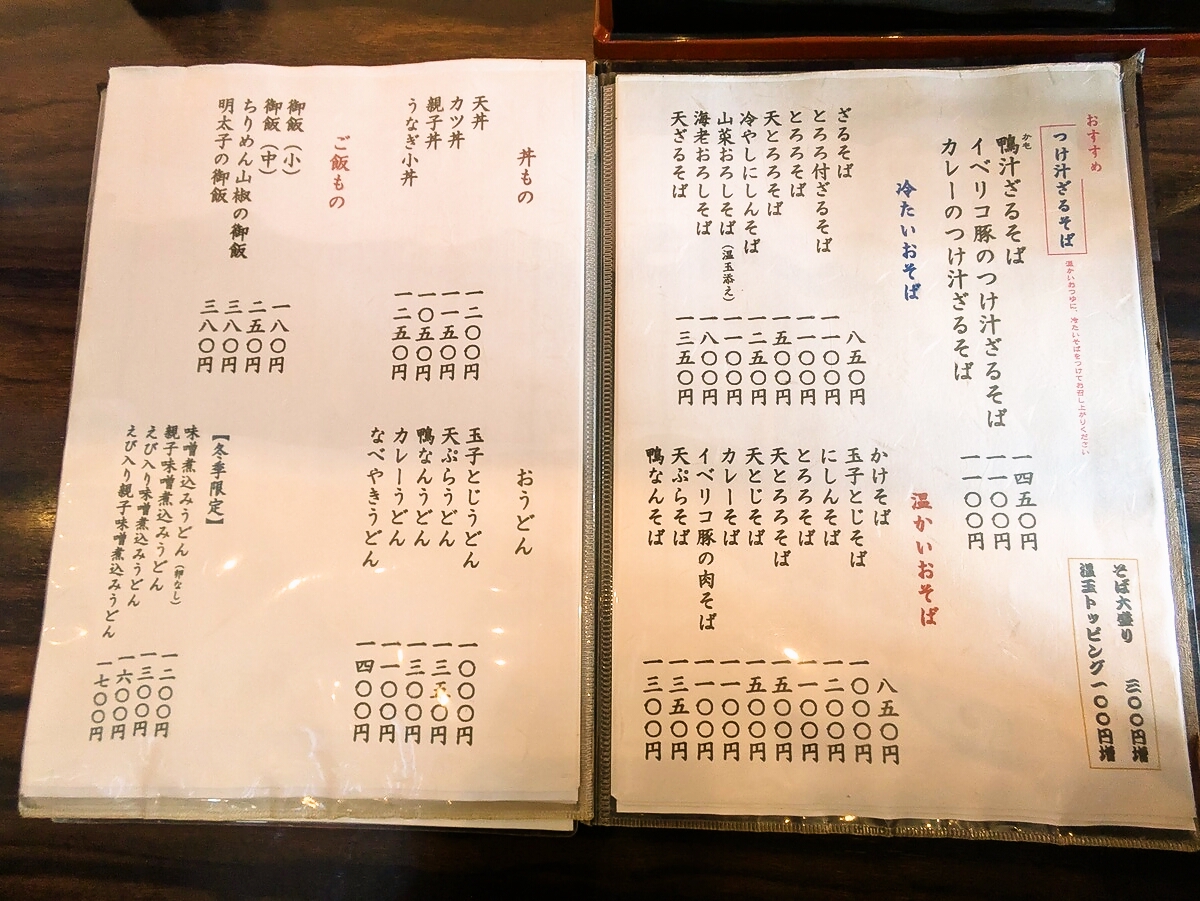 おすすめ
つけ汁ざるそば
温かいおつゆに、冷たいそばをつけてお召し上がりください
かも
鴨汁ざるそば 一四五〇円
イベリコ豚のつけ汁ざるそば 一一〇〇円
カレーのつけ汁ざるそば 一一〇〇円
そば大盛り 三〇〇円増
温玉トッピング 一〇〇円増
冷たいおそば
ざるそば 八五〇円
とろろ付ざるそば 一一〇〇円
とろろそば 一一〇〇円
天とろろそば 一五〇〇円
冷やしにしんそば 一二五〇円
山菜おろしそば(温玉添え) 一一〇〇円
海老おろしそば 一八〇〇円
天ざるそば 一三五〇円
温かいおそば
かけそば 八五〇円
玉子とじそば 一〇〇〇円
にしんそば 一二〇〇円
とろろそば 一一〇〇円
天とろろそば 一五〇〇円
天とじそば 一五〇〇円
カレーそば 一一〇〇円
イベリコ豚の肉そば 一一〇〇円
天ぷらそば 一三五〇円
鴨なんそば 一三〇〇円
丼もの
天丼 一二〇〇円
カツ丼 一一五〇円
親子丼 一〇五〇円
うなぎ小丼 一二五〇円
ご飯もの
御飯(小) 一八〇円
御飯(中) 二五〇円
ちりめん山椒の御飯 三八〇円
明太子の御飯 三八〇円
おうどん
玉子とじうどん 一〇〇〇円
天ぷらうどん 一三五〇円
鴨なんうどん 一三〇〇円
カレーうどん 一一〇〇円
なべやきうどん 一四〇〇円
【冬季限定】
味噌煮込みうどん(卵なし) 一二〇〇円
親子味噌煮込みうどん 一三〇〇円
えび入り味噌煮込みうどん 一六〇〇円
えび入り親子味噌煮込みうどん 一七〇〇円